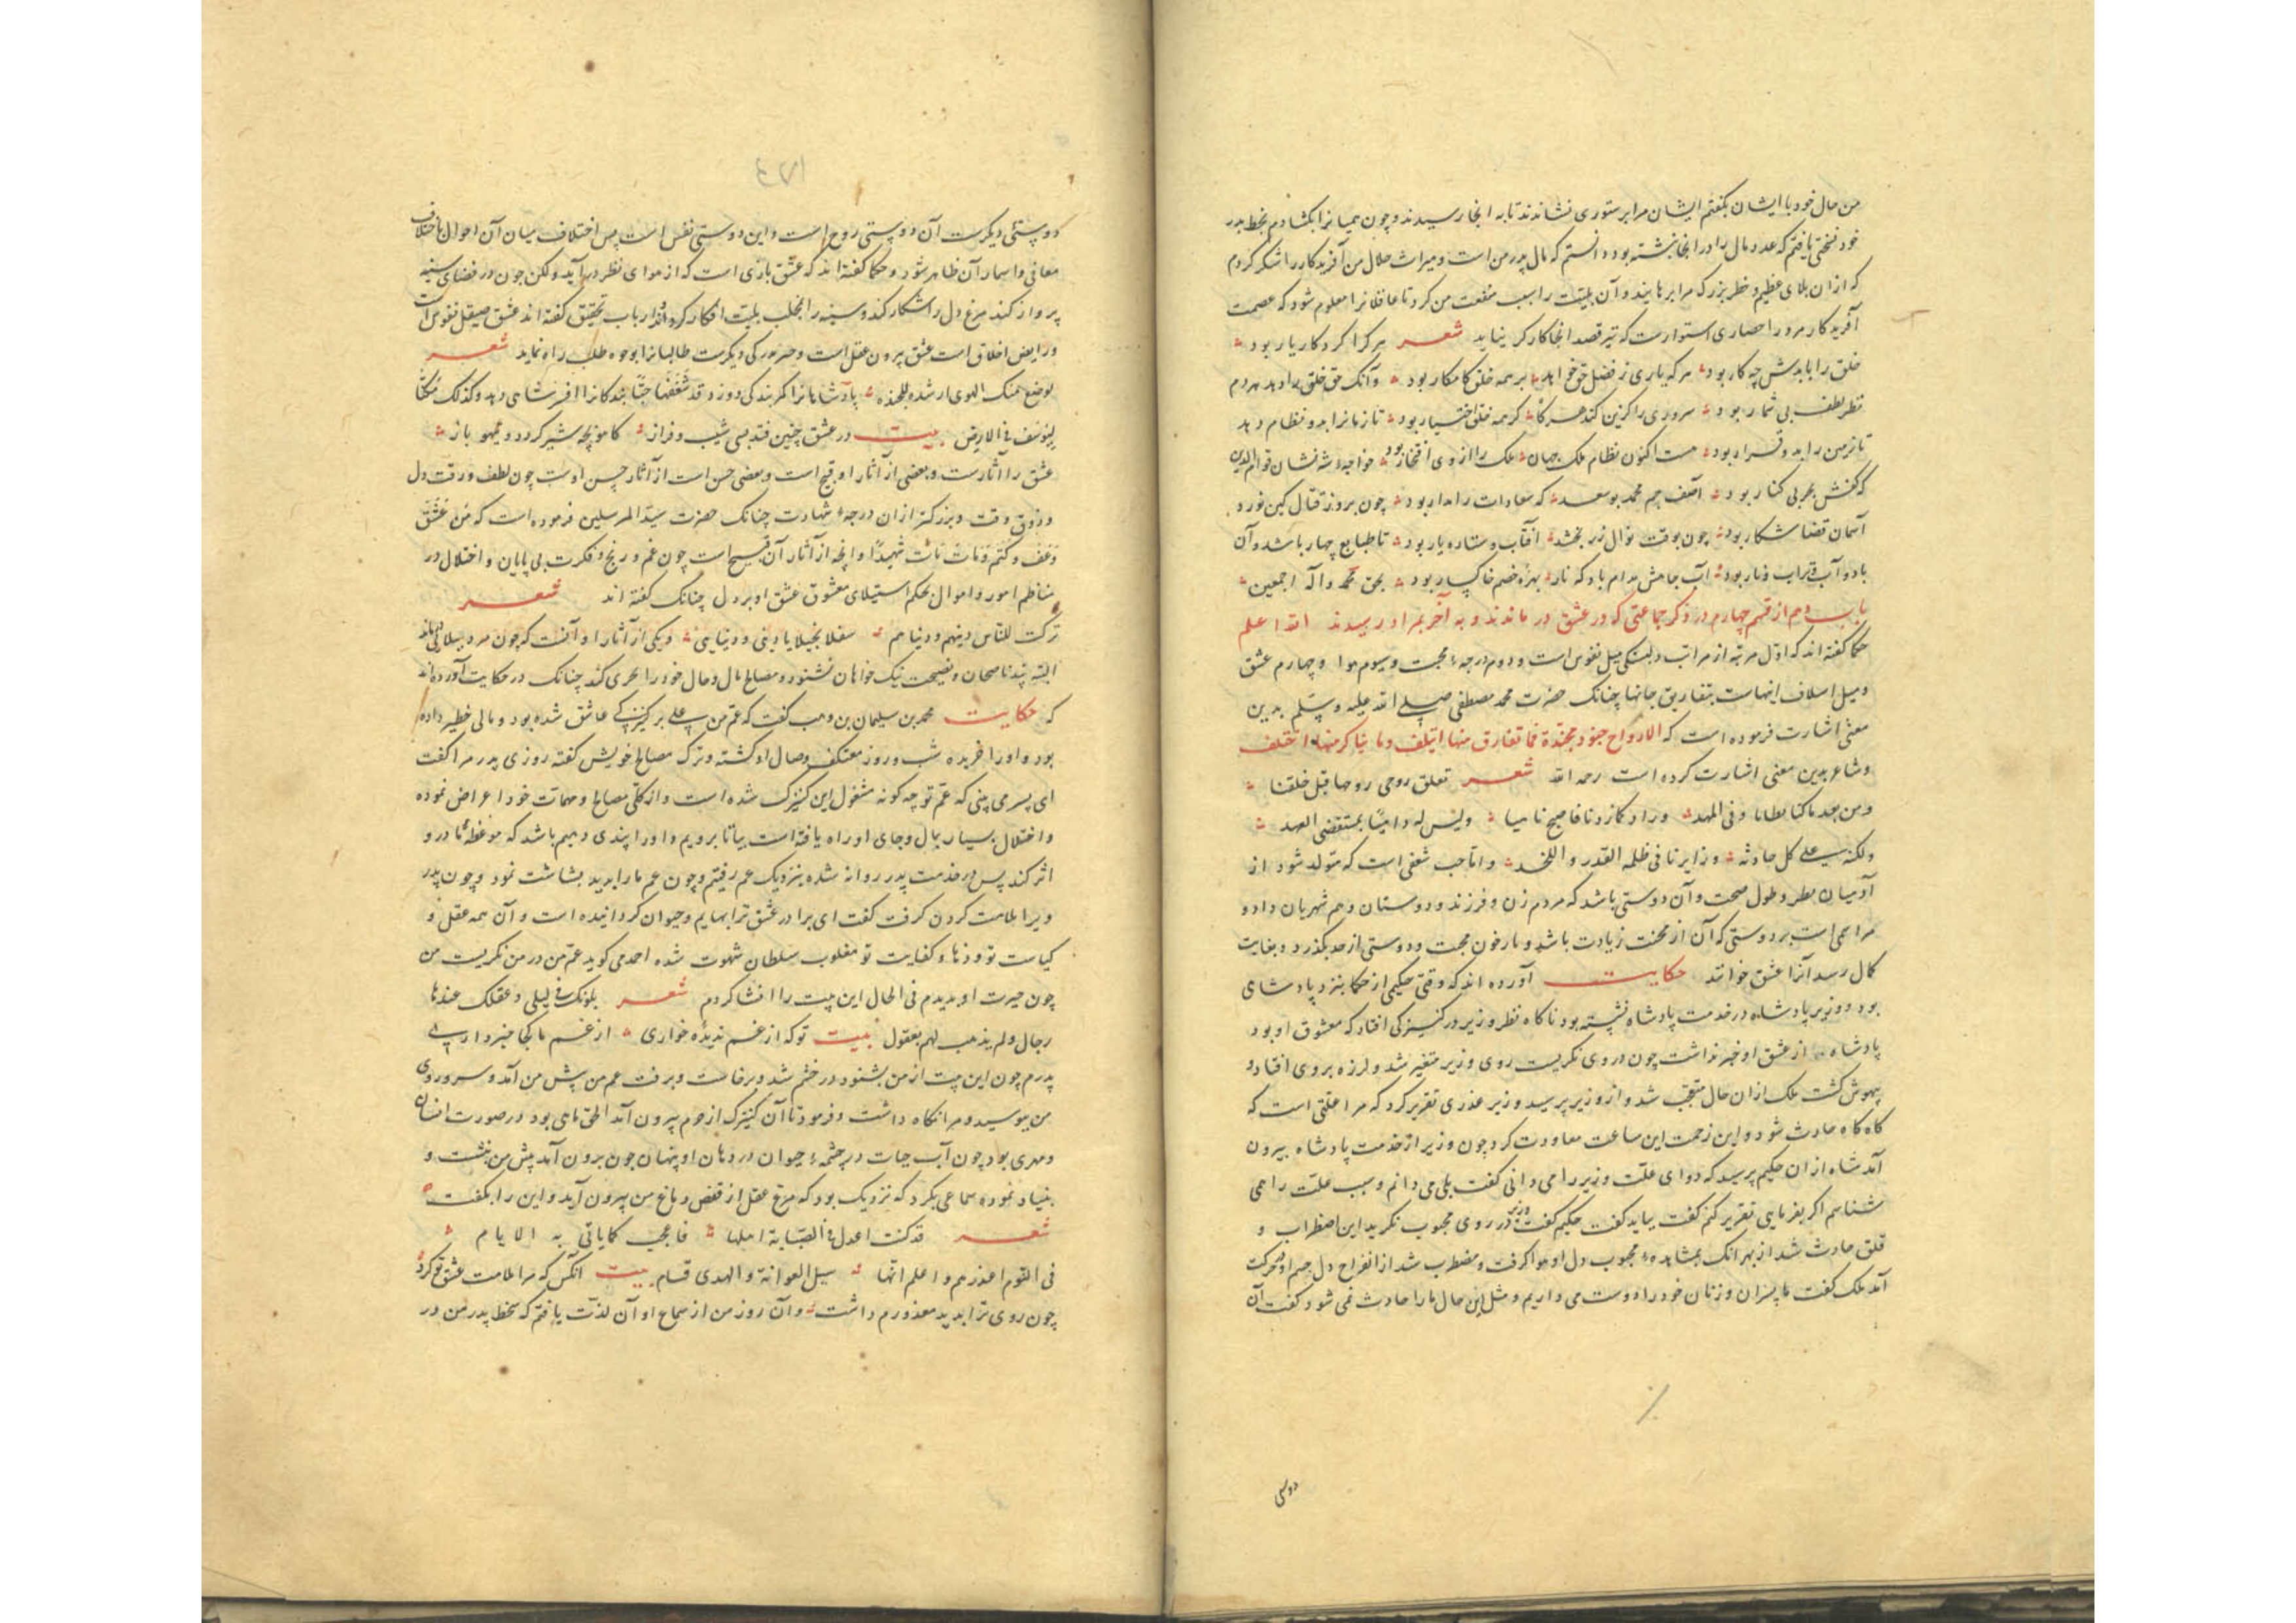 من حال خود با ایشان بگفتم ایشان مرا بر ستوری نشاندند تا به انجا رسیدند و چون همیانرا بکشادم بخط پدر
خود نسختی یافتم که عدد مال را در انجا نبشته بود دانستم که مال پدر من است و میراث حلال من آفریدکار را شکر کردم
که ازان بلای عظیم و خطر بزرک مرا برهانید و آن بلیّت را سبب منفعت من کرد تا عاقلانرا معلوم شود که عصمت
آفریدکار مرد را حصاری استوارست که تیر قصد انجا کارکر نیاید شعر هر کرا کردکار یار بود
خلق را با بدش چه کار بود هر که یاری ز فضل حق خواهد بر همه خلق کامکار بود وآنک حق خلق را دهد بدم
نظر لطف بی شمار بود سروری را کزین کند هر کاه کز همه خلق اختیار بود تا زمانرا بدو نظام دهد
تا زمین را بدو قرار بود هست اکنون نظام ملک جهان ملک را از وی افتخار بود خواجهٔ شه نشان قوام الدین
که کفش بحر بی کنار بود آصف جم محمد بوسعد که سعادات را مدار بود چون بروز قتال کین خورد
آسمان قضا شکار بود چون بوقت نوال زر بخشد آفتاب و ستاره یار بود تا طبایع چهار باشد و آن
باد و آب و تراب و نار بود آب جامش مدام باد که نار بهرهٔ خصم خاکسار بود بحق محمد وآله اجمعین
باب دهم از قسم چهارم در ذکر جماعتی که در عشق در ماندند و به آخر بمراد رسیدند الله اعلم
حکما کفته اند که اوّل مرتبه از مراتب دلبستکی میل نفوس است و دوم درجهٔ محبت و سیوم هوا و چهارم عشق
و میل اسلاف اینهاست بتفاریق جانها چنانک حضرت محمد مصطفی صلی الله علیه وسلم بدین
معنی اشارت فرموده است که الارواح جنود مجندة فما تعارف منها ایتلف وما تناکر منها اختلف
و شاعر بدین معنی اشارت کرده است رحمه الله شعر تعلق روحی روحها قبل خلقنا
ومن بعد ما کنا نطافا وفی المهد وزاد کما زدنا فاصبح نامیا ولیس له دامیًا بمنتقضی العهد
ولکنه علی کل حادثه وزایرنا فی ظلمه القبر واللحد و اما حب شغفی است که متولد شود از
آدمیان بطر و طول صحبت و آن دوستی باشد که مردم زن و فرزند و دوستان و هم شهریان دارد و
مر اسمی است بر دوستی که آن از محنت زیادت باشد و مارخون محبت و دوستی از حد بکذرد و بغایت
کمال رسد آنرا عشق خوانند حکایت آورده اند که وقتی حکیمی از حکما بنزد پادشای
بود و وزیر پادشاه در خدمت پادشاه نشسته بود ناکاه نظر وزیر در کنیزکی افتاد که معشوق او بود
پادشاه از عشق او خبر نداشت چون در وی نکریست روی وزیر متغیر شد و لرزه بر وی افتاد و
بیهوش کشت ملک ازان حال متعجب شد و از وزیر پرسید وزیر عذری تقریر کرد که مرا علتی است که
کاه کاه حادث شود و این زحمت این ساعت معاودت کرد چون وزیر از خدمت پادشاه بیرون
آمد شاه ازان حکیم پرسید که دوای علّت وزیر را می دانی کفت بلی می دانم و سبب علّت را می
شناسم اکر بفرمایی تقریر کنم کفت بباید کفت حکیم کفت وزیر در روی محبوب نکرید این اضطراب و
قلق حادث شد از بهر انک بمشاهدهٔ محبوب دل او هوا کرفت و مضطرب شد از انفراح دل جسم او در حرکت
آمد ملک کفت ما پسران و زنان خود را دوست می داریم و مثل این حال ما را حادث نمی شود کفت آن
دوستی
۱۷۶
دوستئی دیکرست آن دوستی روح است و این دوستی نفس است پس اختلاف میان آن احوال باختلاف
معانی و اسمار آن ظاهر شود و حکما کفته اند که عشق بازی است که از هوای نظر در آید ولکن چون در فضای سینه
پرواز کند مرغ دل را شکار کند و سینه را بمخلب بلیّت افکار کرداند ارباب تحقیق کفته اند عشق صیقل نفوس است
و رایض اخلاق است عشق بیرون عقل است و رهبری دیکرست طالبانرا بوجوه طلب راه نماید شعر
پادشاهانرا کمر بندکی دوزد قد شغفها حبًّا بندکانرا افسر شاهی دهد وکذلک مکنّا
لیوسف فی الارض بیت در عشق چنین فتد بسی شیب و فراز کاهو بچه شیر کردد و تیهو باز
عشق را آثارست و بعضی از آثار او قبیح است و بعضی حسن است از آثار حسن اوست چون لطف و رقت دل
و ذوق وقت و بزرکتر ازان درجهٔ شهادت چنانک حضرت سید المرسلین فرموده است که من عشق
وعف وکتم ومات مات شهیدًا و انچه از آثار آن قبیح است چون غم و رنج و فکرت بی پایان و اختلال در
مناظم امور و احوال بحکم استیلای معشوق عشق او بر دل چنانک کفته اند شعر
ترکت للناس دینهم و دنیاهم و یکی از آثار او آنست که چون مرد مبتلا کردد
البته پند ناصحان و نصیحت نیک خواهان نشنود و مصالح مال و حال خود را بحری کند چنانک در حکایت آورده اند
که حکایت محمد بن سلیمان بن وهب کفت که عمّ من علی بر کنیزکی عاشق شده بود و مالی خطیر داده
بود و او را خریده شب و روز معتکف وصال او کشته و ترک مصالح خویش کفته روزی پدر مرا کفت
ای پسر می بینی که عمّ تو چه کونه مشغول این کنیزک شده است و از کلّی مصالح و مهمات خود اعراض نموده
و اختلال بسیار بمال و جای او راه یافته است بیا تا برویم و او را پندی دهیم باشد که موعظهٔ ما در و
اثر کند پس در خدمت پدر روانه شده بنزدیک عم رفتیم و چون عم ما را بدید بشاشت نمود و چون پدر
ویرا ملامت کردن کرفت کفت ای برادر عشق ترا بهایم و حیوان کردانیده است و آن همه عقل و
کیاست تو و ذهاء و کفایت تو مغلوب سلطان شهوت شده احمد می کوید عمّ من در من نکریست من
چون حیرت او بدیدم فی الحال این بیت را انشا کردم شعر یلومک فی لیلی وعقلک عندها
رجال ولم یذهب لهم بعقول بیت تو که از غم ندیدهٔ خواری از غم ما کجا خبر داری
پدرم چون این بیت از من بشنود در خشم شد و برخاست و برفت عم من پیش من آمد و سر و روی
من ببوسید و مرا نکاه داشت و فرمود تا آن کنیزک از حرم بیرون آمد الحق ماهی بود در صورت انسان
و مهری بود چون آب حیات در چشمهٔ حیوان در دهان او پنهان چون برون آمد پیش من بنشست و
بنیاد نموده سماعی بکرد که نزدیک بود که مرغ عقل از قفص دماغ من بیرون آید و این را بکفت
شعر قد کنت اعدل فی الصبابة اهلها فاعجب کایاتی به الایام
فی القوم اعذرهم واعلم انها سبل الغوایة والهدی قسام بیت آنکس که مرا ملامت عشق تو کرد
چون روی ترا بدید معذورم داشت و آن روز من از سماع او آن لذّت یافتم که سخط پدر من در